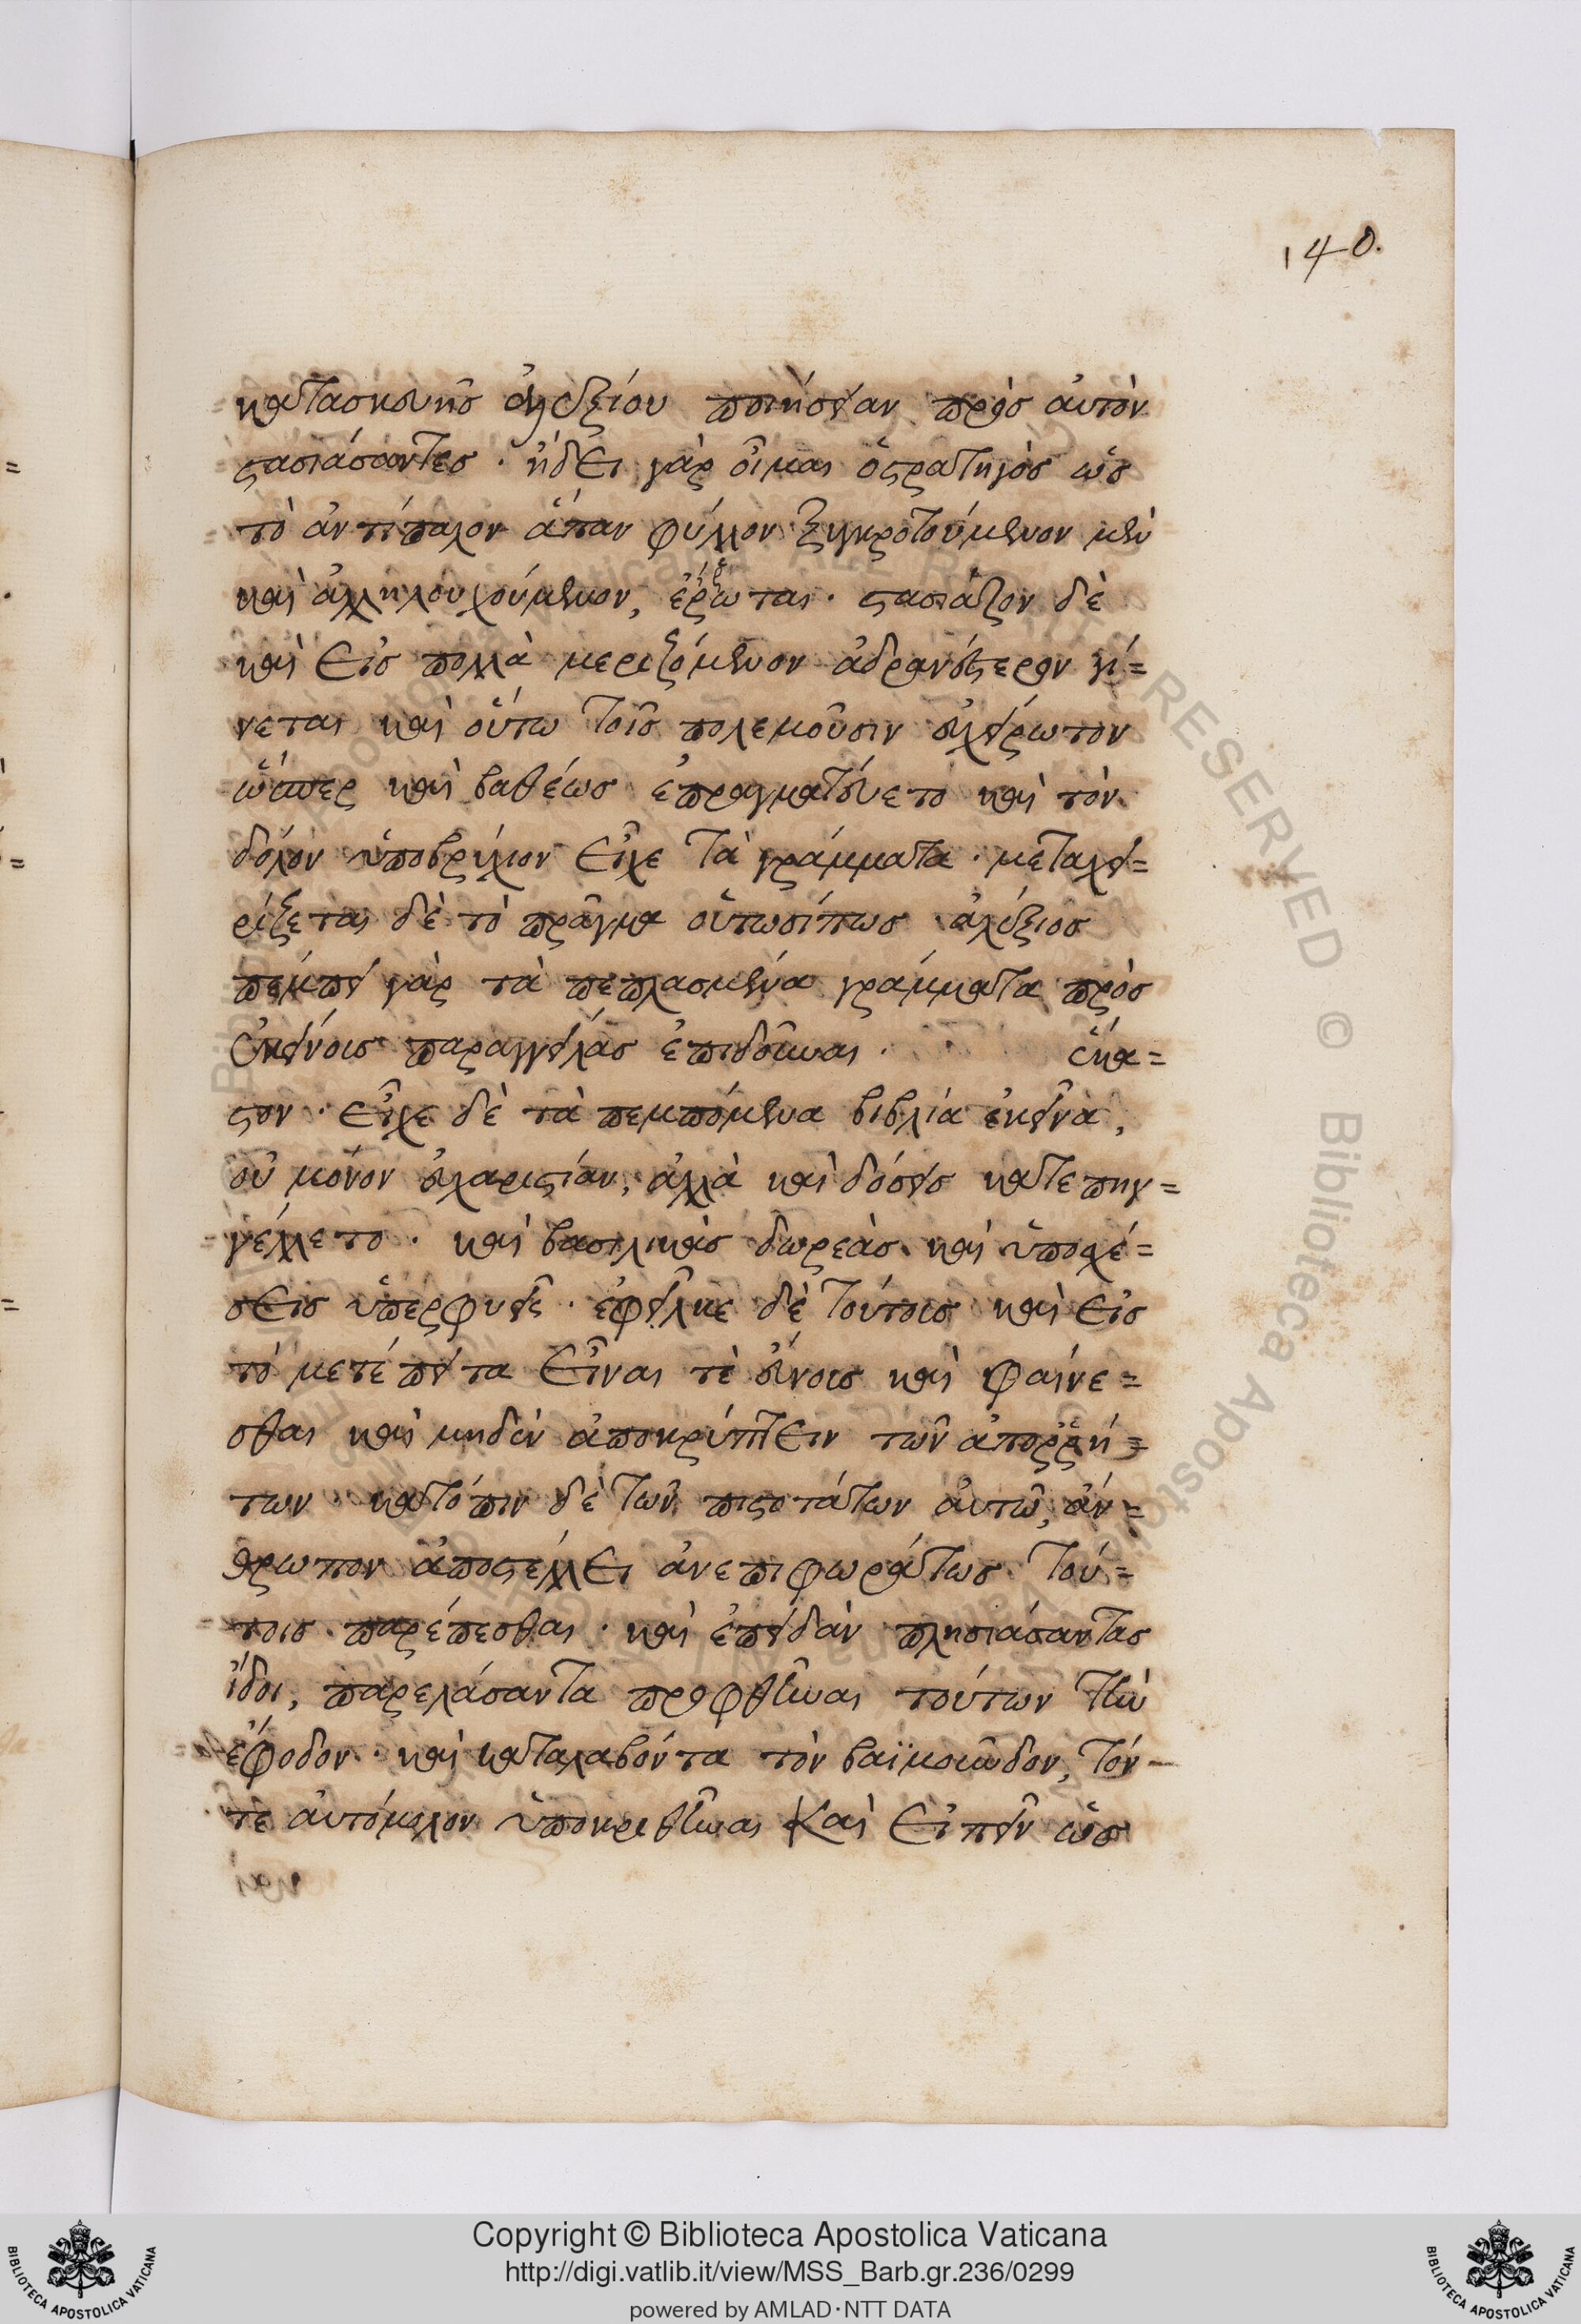 140.
κατασκευῆς ἀλεξίου ποιήσειαν πρὸς ἀυτὸν
στασιάσαντες · ἤδει γὰρ οἶμαι ὁστρατηγὸς ὡς
τὸ ἀντίπαλον ἅπαν φύλλον ξυγκροτούμενον μὲν
καὶ ἀλληλουχούμενον, ἔρρωται · στασιάζον δὲ
καὶ εἰς πολλὰ μεριζόμενον ἀδρανέστερον γί=
νεται καὶ οὕτω τοῖς πολεμοῦσιν εὐχείρωτον
ὥσπερ καὶ βαθέως ἐπραγματεύετο καὶ τὸν
δόλον ὑποβρύχιον εἶχε τὰ γράμματα · μεταχει=
ρίζεται δὲ τὸ πρᾶγμα οὑτωσίπως ἀλέξιος
πέμπει γὰρ τὰ πεπλασμένα γράμματα πρὸς
ἐκείνοις παραγγείλας ἐπιδοῦναι · ἕκα=
στον · εἶχε δὲ τὰ πεμπόμενα βιβλία ἐκεῖνα,
οὐ μόνον εὐχαριστίαν, ἀλλὰ καὶ δόσεις κατεπηγ=
γέλλετο · καὶ βασιλικὰς δωρεὰς καὶ ὑποσχέ=
σεις ὑπερφυεῖς · ἐφεῖλκε δὲ τούτοις καὶ εἰς
τὸ μετέπειτα εἶναι τὲ εὔνοις καὶ φαίνε=
σθαι καὶ μηδὲν ἀποκρύπτειν τῶν ἀπορρή=
των · κατόπιν δὲ τῶν πιστοτάτων ἀυτῶ, ἄν=
θρωπον ἀποστέλλει ἀνεπιφωράτως τού=
τοις παρέπεσθαι · καὶ ἐπειδὰν πλησιάσαντας
ἴδοι, παρελάσαντα προφθῆναι τούτων τὴν
ἔφοδον · καὶ καταλαβόντα τὸν βαϊμοῦνδον, τόν
τε ἀυτόμολον ὑποκριθῆναι καὶ εἰπεῖν ὡς
Copyright © Biblioteca Apostolica Vaticana
http://digi.vatlib.it/view/MSS_Barb.gr.236/0299
powered by AMLAD·NTT DATA